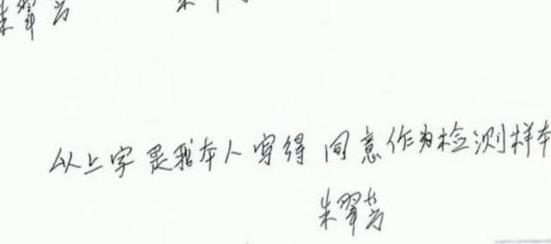 朱翠芳
以上字是我本人写得 同意作为检测样本
朱翠芳